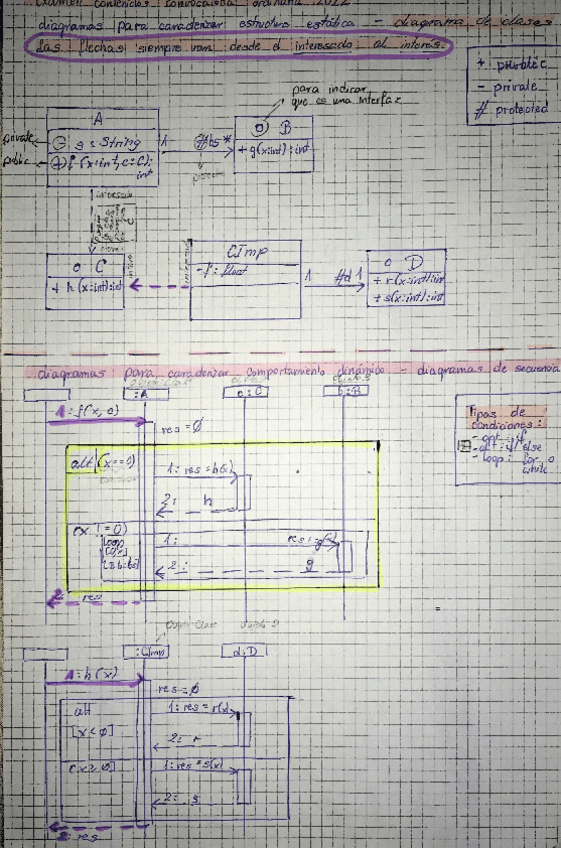 Examen contenidos convocatoria ordinaria 2022
diagramas para caracterizar estructura estática - diagrama de clases
las flechas siempre van desde el interesado al interés.
+ public
- private
# protected
para indicar
que es una interfaz
A
private
- s: String
public
+ f(x:int, c:C):
int
1
#bs *
o B
+ g(x:int): int
interesado
o C
+ h(x:int): int
CImp
- f: float
1
#d 1
o D
+ r(x:int): int
+ s(x:int): int
diagramas para caracterizar comportamiento dinámico - diagramas de secuencia
:A
c:C
b:B
1: f(x, c)
res = ∅
Tipos de
condiciones:
- opt: if
- alt: if else
- loop: for o
while
alt [(x==0)
1: res = h(x)
2: h
(x != 0)
loop
1:
res = g(x)
2: g
2: res
:CImp
d:D
1: h(x)
res = ∅
alt
1: res = r(x)
[x < ∅]
2: r
[x ≥ ∅]
1: res = s(x)
2: s
2: res